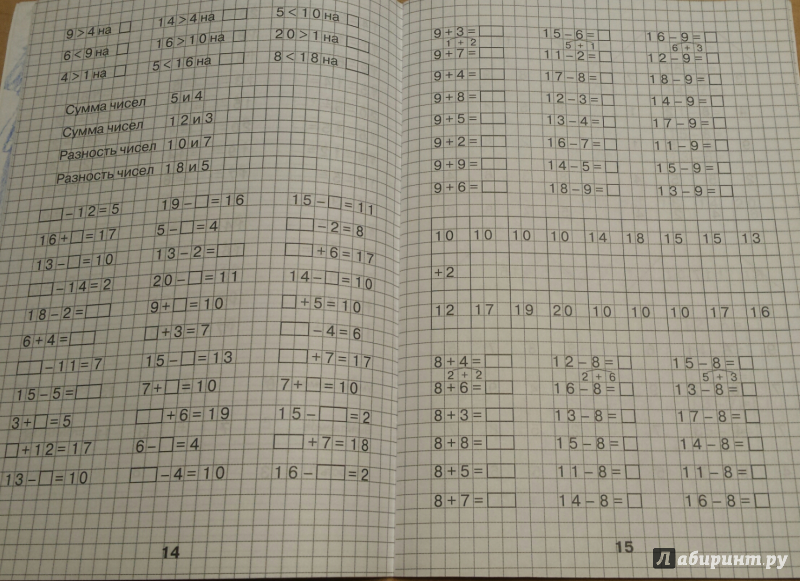 9 > 4 на □ 14 > 4 на □ 5 < 10 на □
6 < 9 на □ 16 > 10 на □ 20 > 1 на □
4 > 1 на □ 5 < 16 на □ 8 < 18 на □
Сумма чисел 5 и 4
Сумма чисел 12 и 3
Разность чисел 10 и 7
Разность чисел 18 и 5
□ − 12 = 5 19 − □ = 16 15 − □ = 11
16 + □ = 17 5 − □ = 4 □ − 2 = 8
13 − □ = 10 13 − 2 = □ □ + 6 = 17
□ − 14 = 2 20 − □ = 11 14 − □ = 10
18 − 2 = □ 9 + □ = 10 □ + 5 = 10
6 + 4 = □ □ + 3 = 7 □ − 4 = 6
□ − 11 = 7 15 − □ = 13 □ + 7 = 17
15 − 5 = □ 7 + □ = 10 7 + □ = 10
3 + □ = 5 □ + 6 = 19 15 − □ = 2
□ + 12 = 17 6 − □ = 4 □ + 7 = 18
13 − □ = 10 □ − 4 = 10 16 − □ = 2
14
9 + 3 = □ 15 − 6 = □ 16 − 9 = □
1 + 2 5 + 1 6 + 3
9 + 7 = □ 11 − 2 = □ 12 − 9 = □
9 + 4 = □ 17 − 8 = □ 18 − 9 = □
9 + 8 = □ 12 − 3 = □ 14 − 9 = □
9 + 5 = □ 13 − 4 = □ 17 − 9 = □
9 + 2 = □ 16 − 7 = □ 11 − 9 = □
9 + 9 = □ 14 − 5 = □ 15 − 9 = □
9 + 6 = □ 18 − 9 = □ 13 − 9 = □
10 10 10 10 14 18 15 15 13
+2
12 17 19 20 10 10 10 17 16
8 + 4 = □ 12 − 8 = □ 15 − 8 = □
2 + 2 2 + 6 5 + 3
8 + 6 = □ 16 − 8 = □ 13 − 8 = □
8 + 3 = □ 13 − 8 = □ 17 − 8 = □
8 + 8 = □ 15 − 8 = □ 14 − 8 = □
8 + 5 = □ 11 − 8 = □ 11 − 8 = □
8 + 7 = □ 14 − 8 = □ 16 − 8 = □
15
Лабиринт.ру